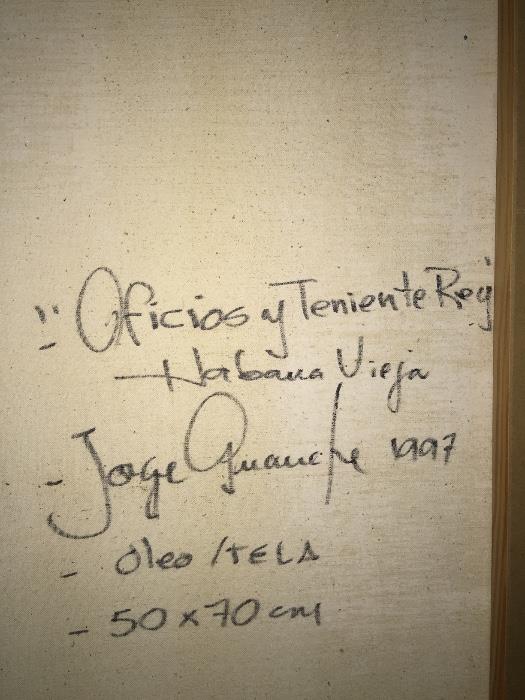 "Oficios y Teniente Rey"
Habana Vieja
- Jorge Guanche 1997
- óleo /TELA
- 50 x 70 cm